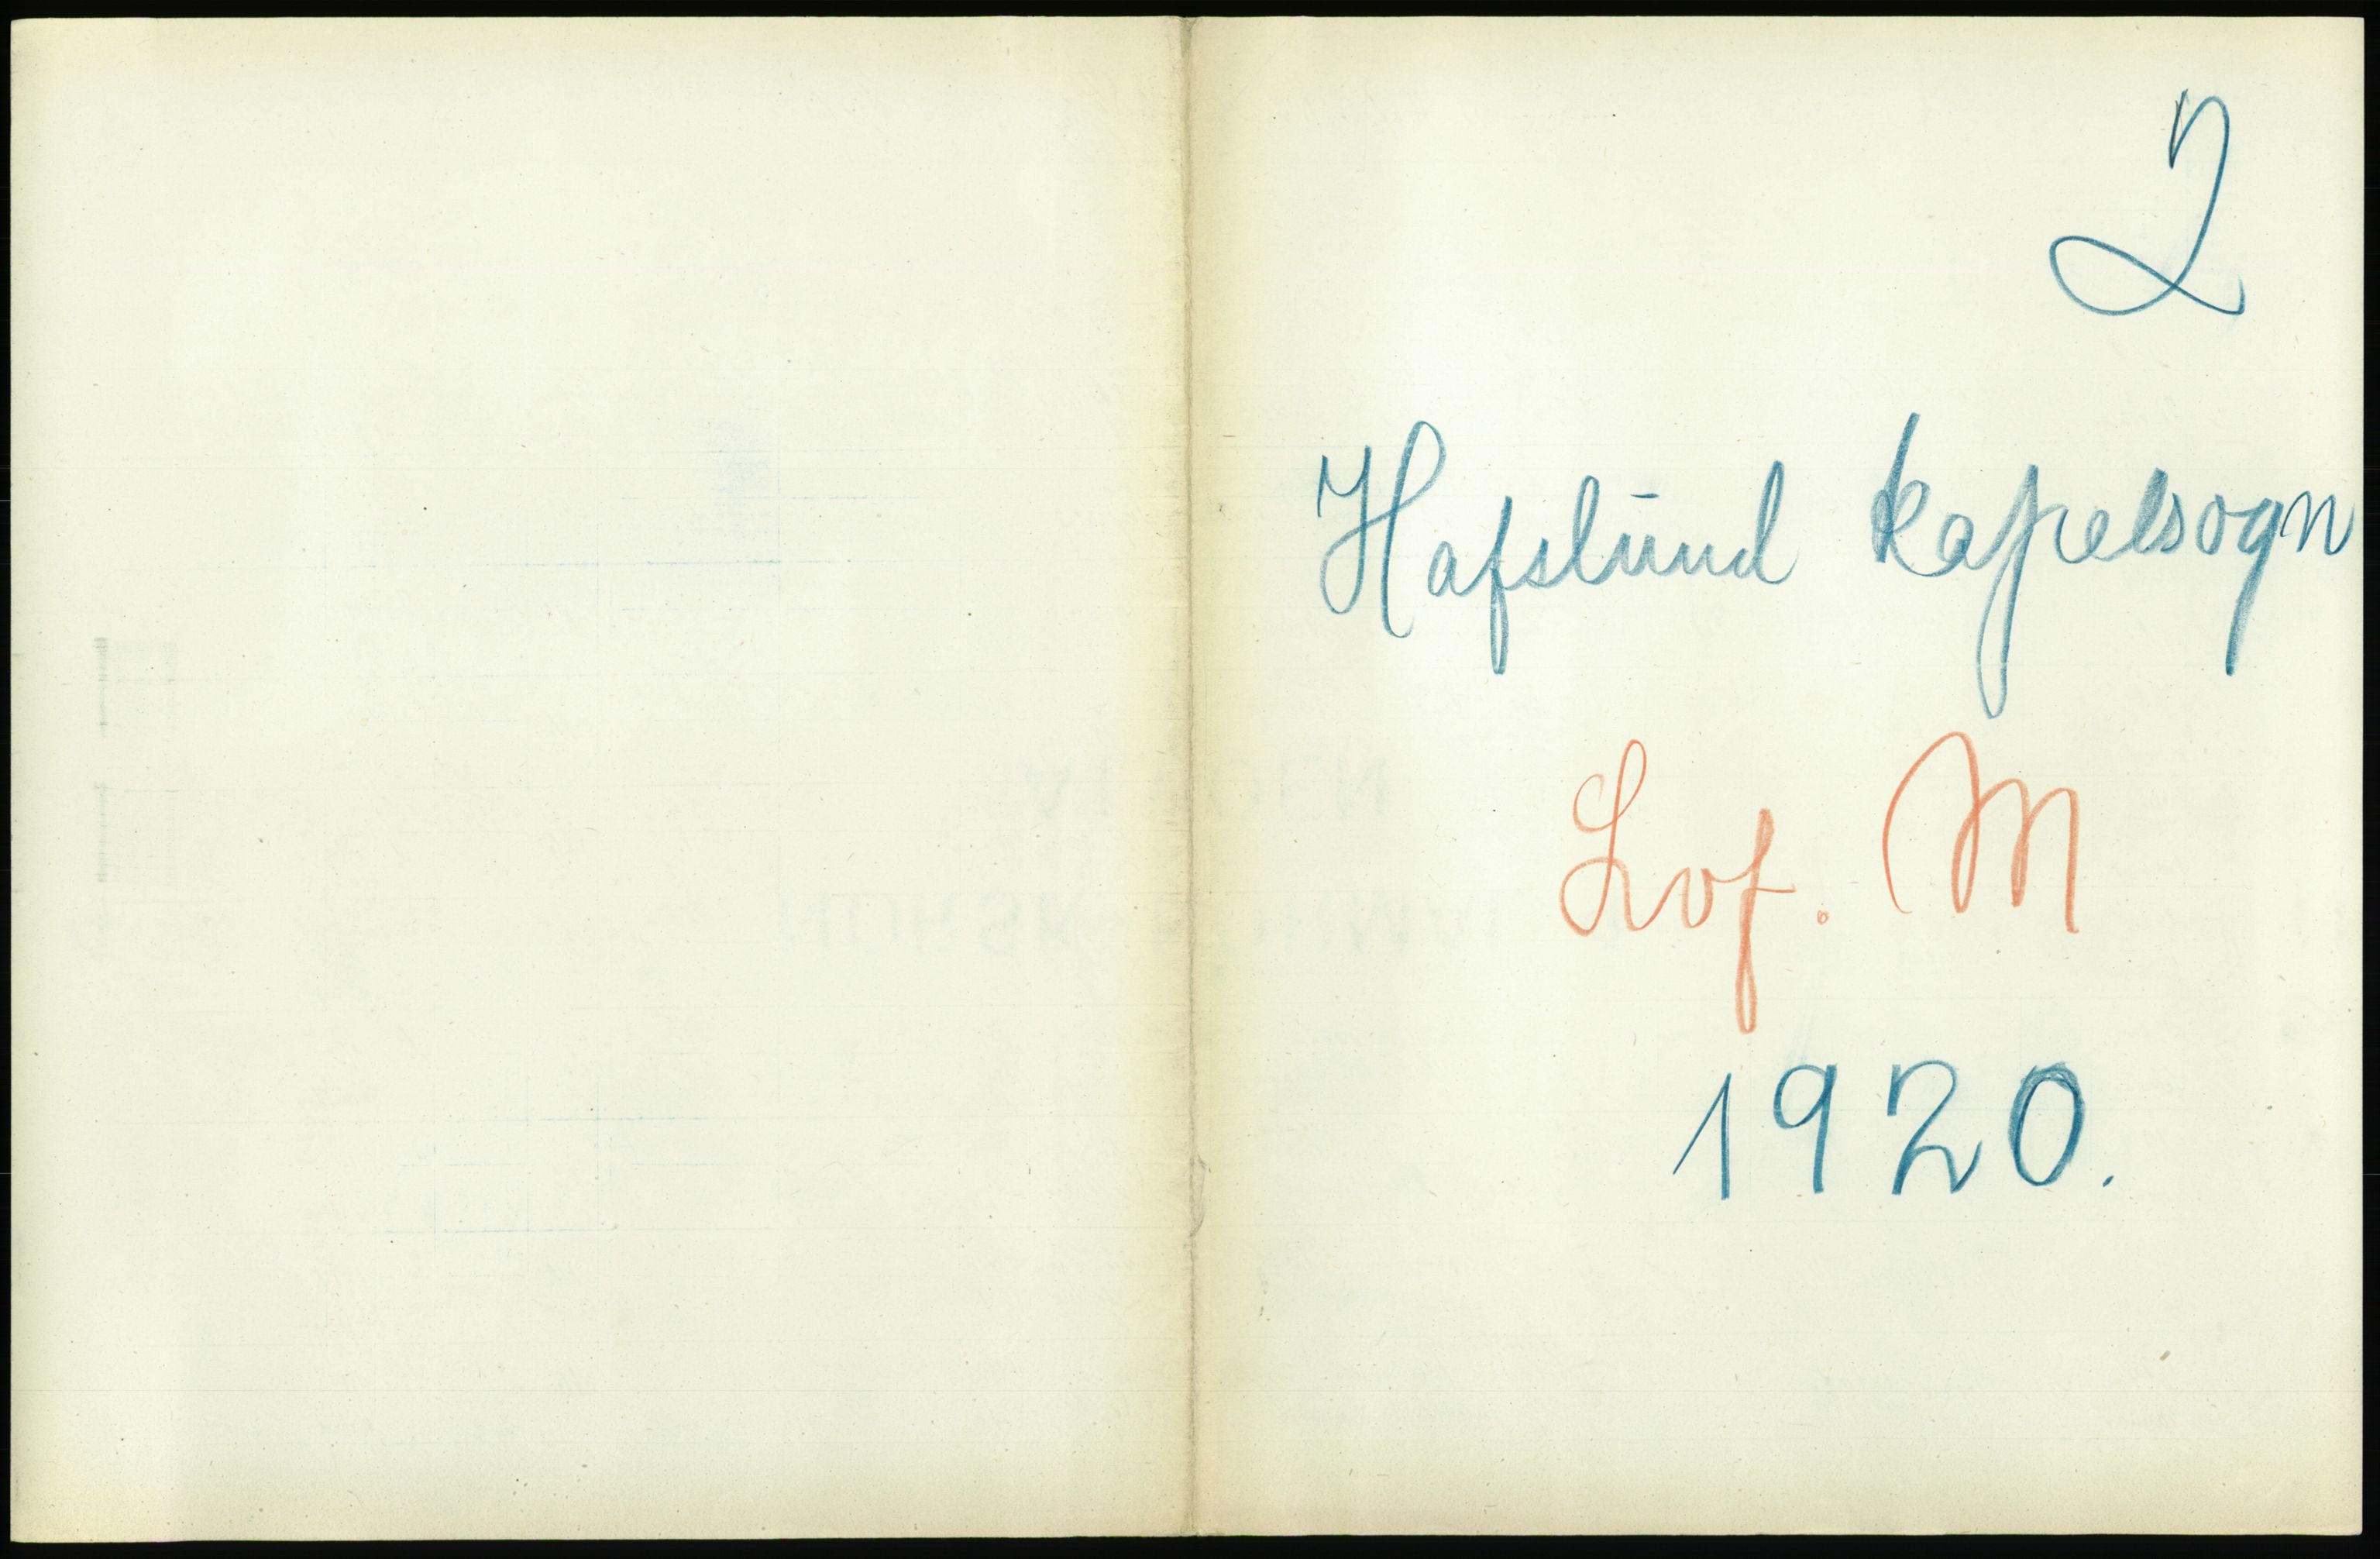 2
Hafslund kapelsogn
Lvf. M
1920.